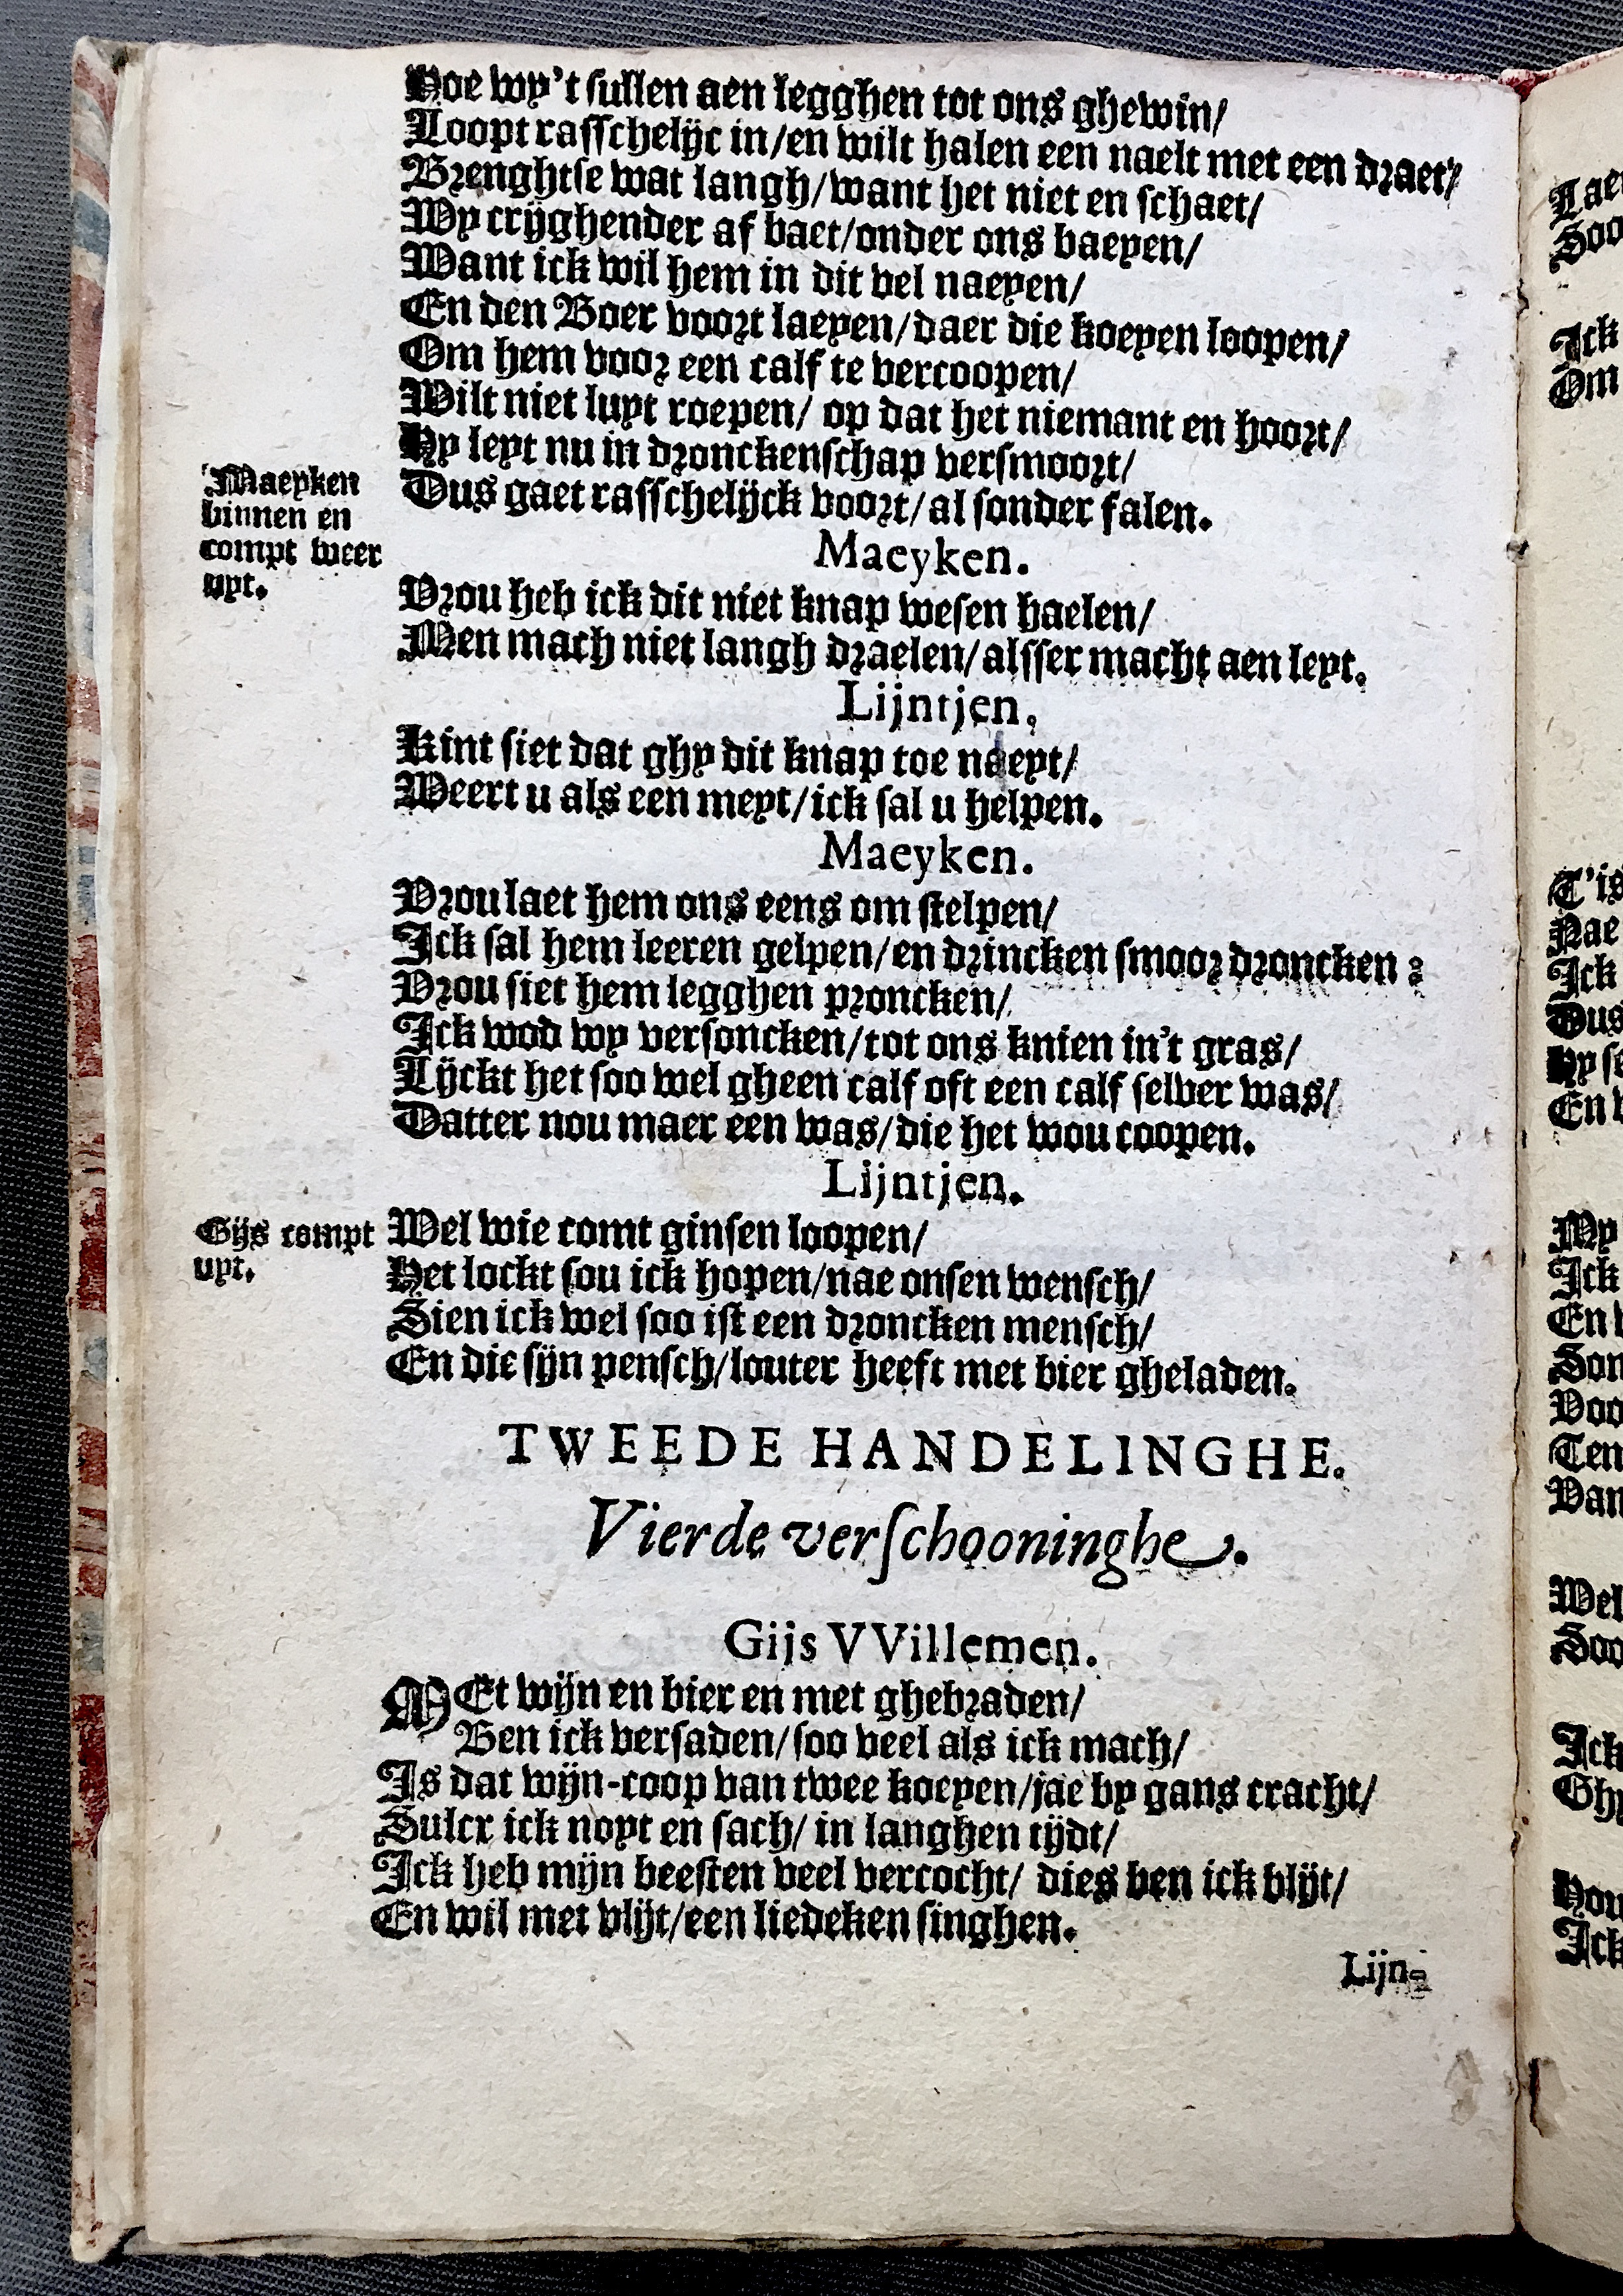 Hoe wy't sullen aen legghen tot ons ghewin/
Loopt rasschelijc in/en wilt halen een naelt met een draet/
Brenghtse wat langh/want het niet en schaet/
Wy crijghender af baet/onder ons baeyen/
Want ick wil hem in dit vel naeyen/
En den Boer voort laeyen/daer die koeyen loopen/
Om hem voor een calf te vercoopen/
Wilt niet luyt roepen/ op dat het niemant en hoort/
Hy leyt nu in dronckenschap versmoort/
Dus gaet rasschelijck voort/al sonder falen.
Maeyken
binnen en
compt weer
uyt.
Maeyken.
Vrou heb ick dit niet knap wesen haelen/
Men mach niet langh draelen/alsser macht aen leyt.
Lijntjen.
Kint siet dat ghy dit knap toe naeyt/
Weert u als een meyt/ick sal u helpen.
Maeyken.
Vrou laet hem ons eens om stelpen/
Ick sal hem leeren gelpen/en drincken smoor droncken:
Vrou siet hem legghen proncken/
Ick wod wy versoncken/tot ons knien in't gras/
Lijckt het soo wel gheen calf oft een calf selver was/
Datter nou maer een was/die het wou coopen.
Lijntjen.
Gijs compt
uyt.
Wel wie comt ginsen loopen/
Het lockt sou ick hopen/nae onsen wensch/
Sien ick wel soo ist een droncken mensch/
En die sijn pensch/louter heeft met bier gheladen.
TWEEDE HANDELINGHE.
Vierde verschooninghe.
Gijs VVillemen.
MEt wijn en bier en met ghebraden/
Ben ick versaden/soo veel als ick mach/
Is dat wijn-coop van twee koeyen/jae by gans cracht/
Sulcx ick noyt en sach/ in langhen tijdt/
Ick heb mijn beesten veel vercocht/ dies ben ick blijt/
En wil met vlijt/een liedeken singhen.
Lijn-